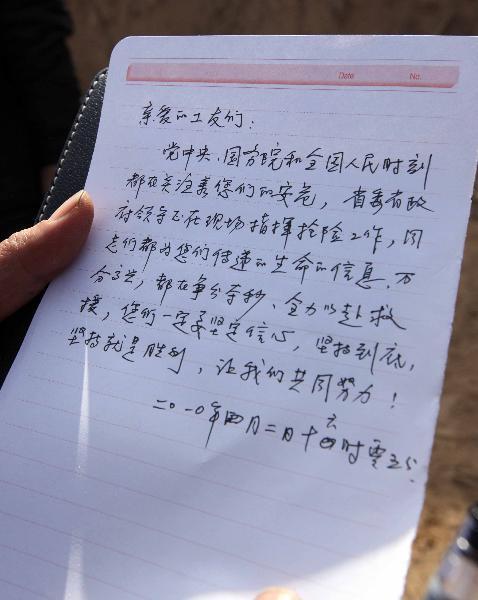 Date No.
亲爱的工友们:
党中央、国务院和全国人民时刻
都在关注着您们的安危,省委省政
府领导正在现场指挥抢险工作,同
志们都为您们传递的生命的信息,万
分高兴,都在争分夺秒、全力以赴救
援,您们一定要坚定信心,坚持到底,
坚持就是胜利,让我们共同努力!
二〇一〇年四月二日十六时零五分